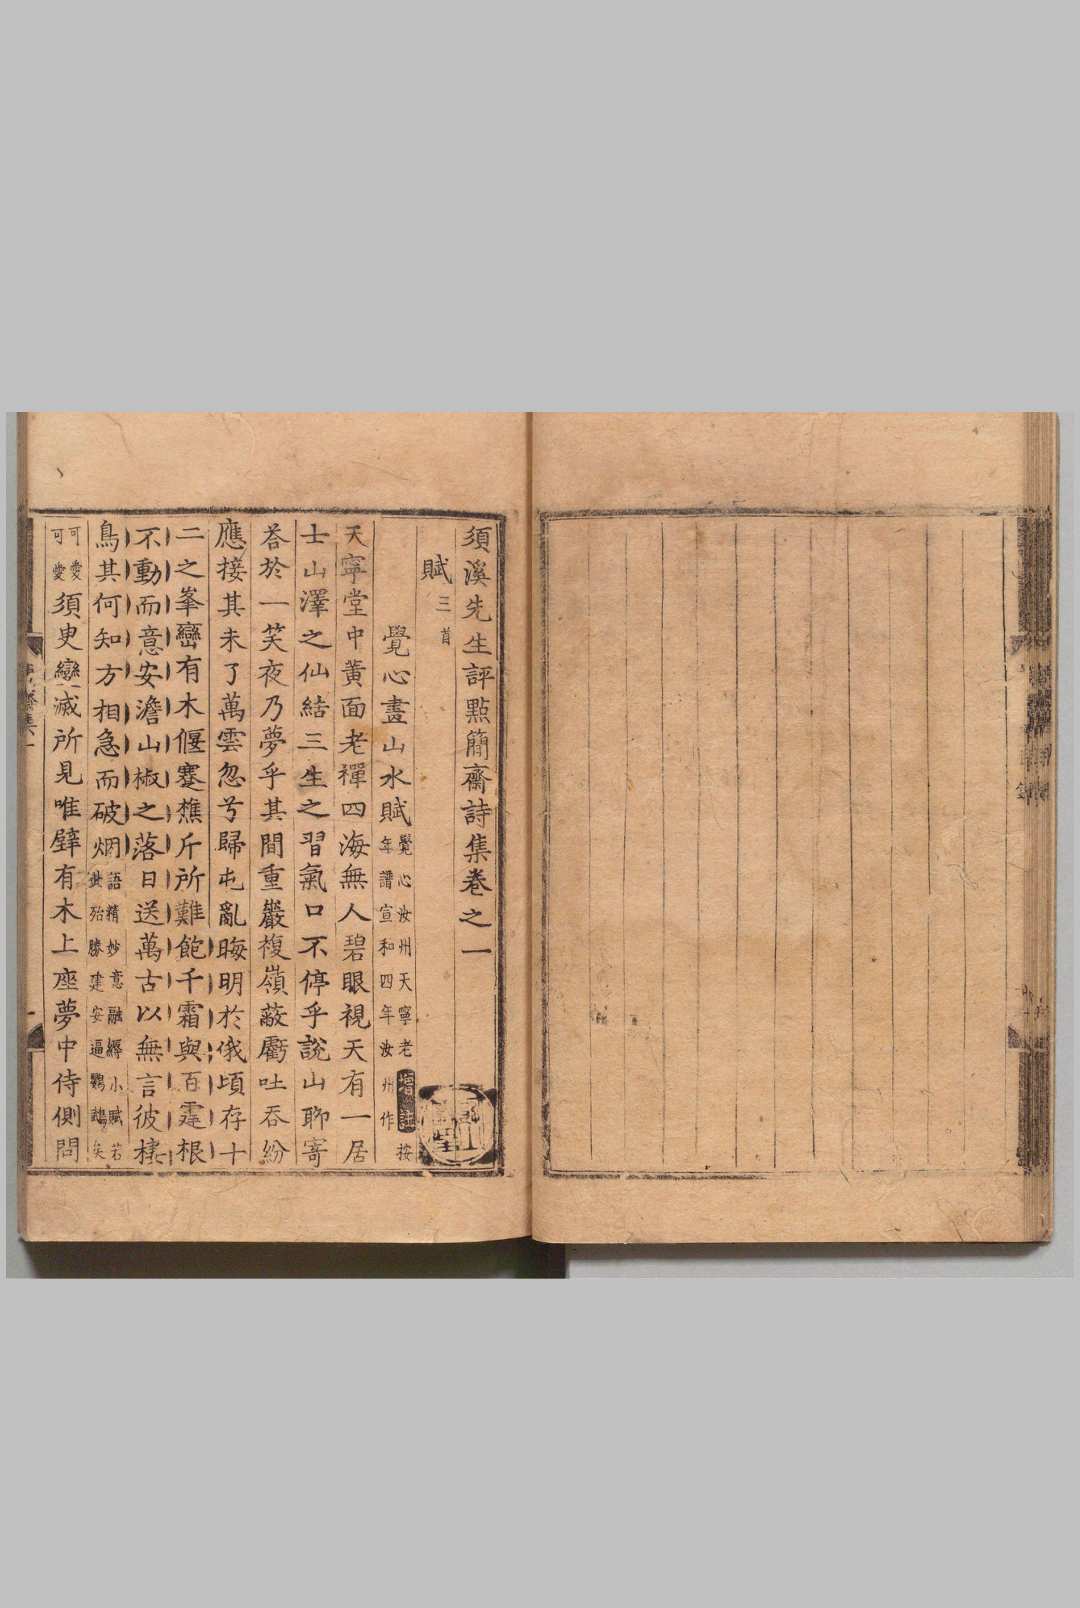 須溪先生評點簡齋詩集卷之一
賦三首
覺心畫山水賦 覺心汝州天寧老 增註 按
年譜宣和四年汝州作
天寧堂中黃面老禪四海無人碧眼視天有一居
士山澤之仙結三生之習氣口不停乎說山聊寄
荅於一笑夜乃夢乎其間重巖複嶺蔽虧吐吞紛
應接其未了萬雲忽兮歸屯亂晦明於俄頃存十
二之峯巒有木偃蹇樵斤所難飽千霜與百霆根
不動而意安澹山椒之落日送萬古以無言彼棲
鳥其何知方相急而破烟 語精妙意融縟小賦若
此殆勝建安逼鸚鵡矣
可愛
可愛
須臾變滅所見唯壁有木上座夢中侍側問